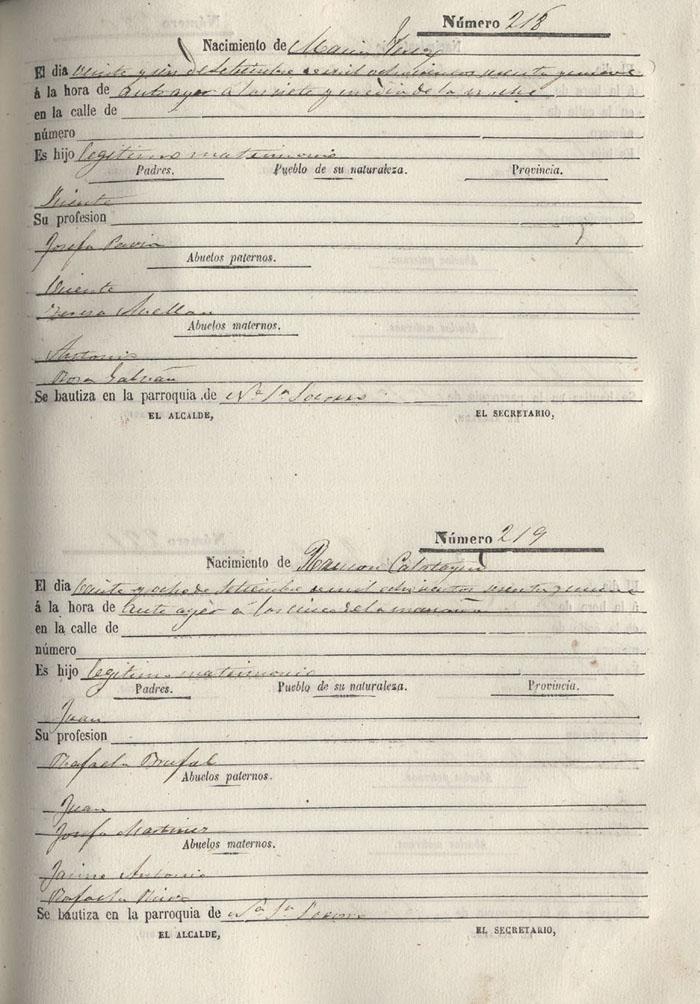 Número 218
Nacimiento de Maria
El dia veinte y seis de Setiembre de mil ochocientos sesenta y nueve
á la hora de antes ayer a las siete y media de la noche
en la calle de
número
Es hijo legitimo matrimonio
Padres. Pueblo de su naturaleza. Provincia.
Vicente
Su profesion
Josefa Pavia
Abuelos paternos.
Vicente
Teresa Avellan
Abuelos maternos.
Antonio
Rosa Galvañ
Se bautiza en la parroquia de Nª Sª Socorro
EL ALCALDE, EL SECRETARIO,
Número 219
Nacimiento de Ramon Calatayud
El dia veinte y ocho de Setiembre de mil ochocientos sesenta y nueve
á la hora de ante ayer a las cinco de la mañana
en la calle de
número
Es hijo legitimo matrimonio
Padres. Pueblo de su naturaleza. Provincia.
Juan
Su profesion
Rafaela Brufal
Abuelos paternos.
Juan
Josefa Martinez
Abuelos maternos.
Jaime Antonio
Rafaela
Se bautiza en la parroquia de Nª Sª Socorro
EL ALCALDE, EL SECRETARIO,